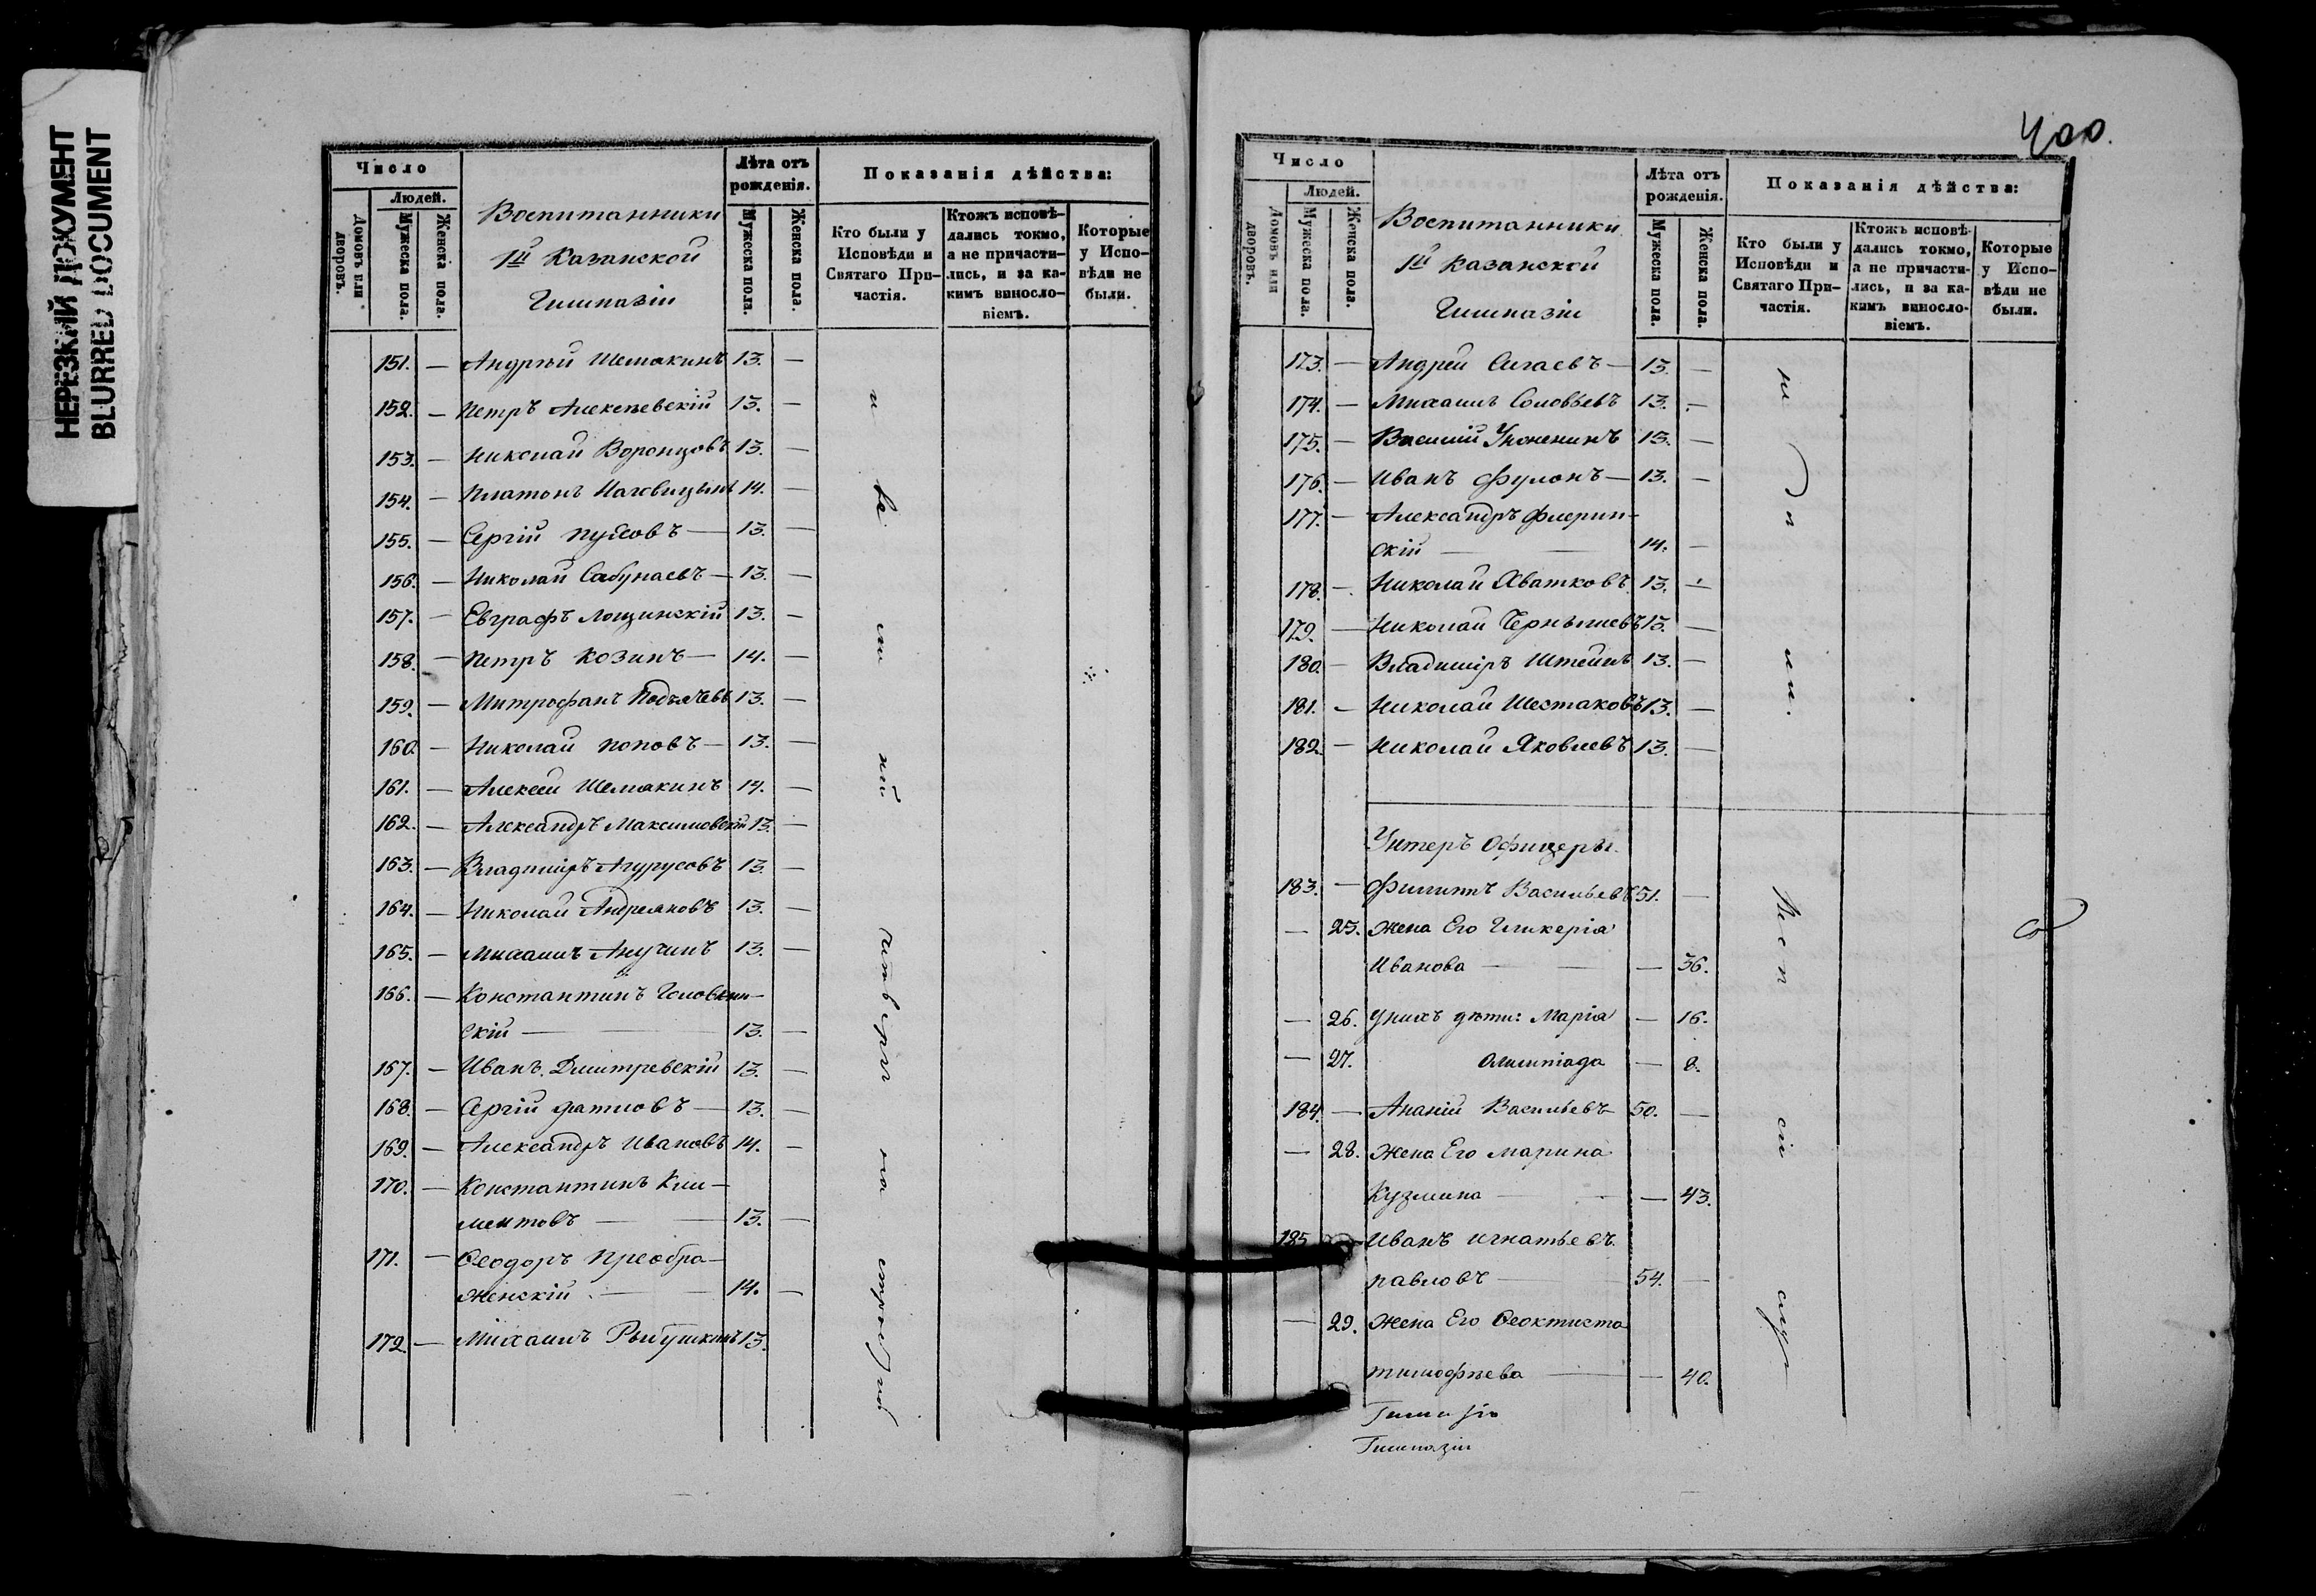 НЕРЕЗКИЙ ДОКУМЕНТ
BLURRED DOCUMENT
Число
Людей.
Домовъ или дворовъ.
Мужеска пола.
Женска пола.
Воспитанники
1й Казанской
Гимназіи
Лѣта отъ рожденія.
Мужеска пола.
Женска пола.
Показанія дѣйства:
Кто были у Исповѣди и Святаго При-
частія.
Ктожъ исповѣ-
дались токмо,
а не причасти-
лись, и за ка-
кимъ виносло-
віемъ.
Которые
у Испо-
вѣди не
были.
151. — Андрей Шемякинъ 13. —
152. — Петръ Алексеевскій 13. —
153. — Николай Воронцовъ 13. —
154. — Платонъ Наговицынъ 14. —
155. — Сергій — 13. —
156. — Николай Сабунаевъ — 13. —
157. — Евграфъ Лощинскій 13. —
158. — Петръ Козинъ — 14. —
159. — Митрофанъ 13. —
160. — Николай Поповъ — 13. —
161. — Алексей Шемякинъ 14. —
162. — Александръ Максимовскій 13. —
163. — Владиміръ Агурусовъ 13. —
164. — Николай Андреяновъ 13. —
165. — Михаилъ Анучинъ 13. —
166. — Константинъ Головкин-
скій — 13. —
167. — Иванъ Дмитревскій 13. —
168. — Сергій — 13. —
169. — Александръ Ивановъ 14. —
170. — Константинъ Кли-
ментовъ — 13. —
171. — Ѳеодоръ Преобра-
женскій — 14. —
172. — Михаилъ Рыбушкинъ 13.
400.
Число
Людей.
Домовъ или дворовъ.
Мужеска пола.
Женска пола.
Воспитанники
1й Казанской
Гимназіи
Лѣта отъ рожденія.
Мужеска пола.
Женска пола.
Показанія дѣйства:
Кто были у
Исповѣди и
Святаго При-
частія.
Ктожъ исповѣ-
дались токмо,
а не причасти-
лись, и за ка-
кимъ виносло-
віемъ.
Которые
у Испо-
вѣди не
были.
173. — Андрей Сигаевъ — 13. —
174. — Михаилъ Соловьевъ 13. —
175. — Василій 13. —
176. — Иванъ Фулонъ — 13. —
177. — Александръ Флерин-
скій — 14. —
178. — Николай Хватковъ 13. —
179. — Николай 13. —
180. — Владиміръ Штейнъ 13. —
181. — Николай Шестаковъ 13. —
182. — Николай Яковлевъ 13. —
Унтеръ Офицеры.
183. — Филиппъ Васильевъ 51. —
— 25. Жена Его Гликерія
Иванова — — 36.
— 26. У нихъ дѣти: Марія — 16.
— 27. Олимпіада — 8.
184. — Ананій Васильевъ 50. —
— 28. Жена Его Марина
Кузмина — — 43.
185 — Иванъ Игнатьевъ
Павловъ — 54. —
— 29. Жена Его Ѳеоктиста
Тимофѣева — — 40.
Гимназіи